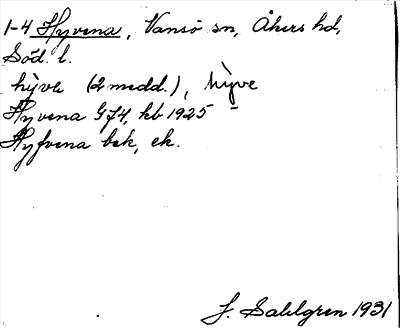 1-4 Hyvena, Vansö sn, Åkers hd,
Söd. l.
hỳve (2 medd.), hỳve
Hyvena G74, kb 1925
Hyfvena bek, ek.
J. Sahlgren 1931